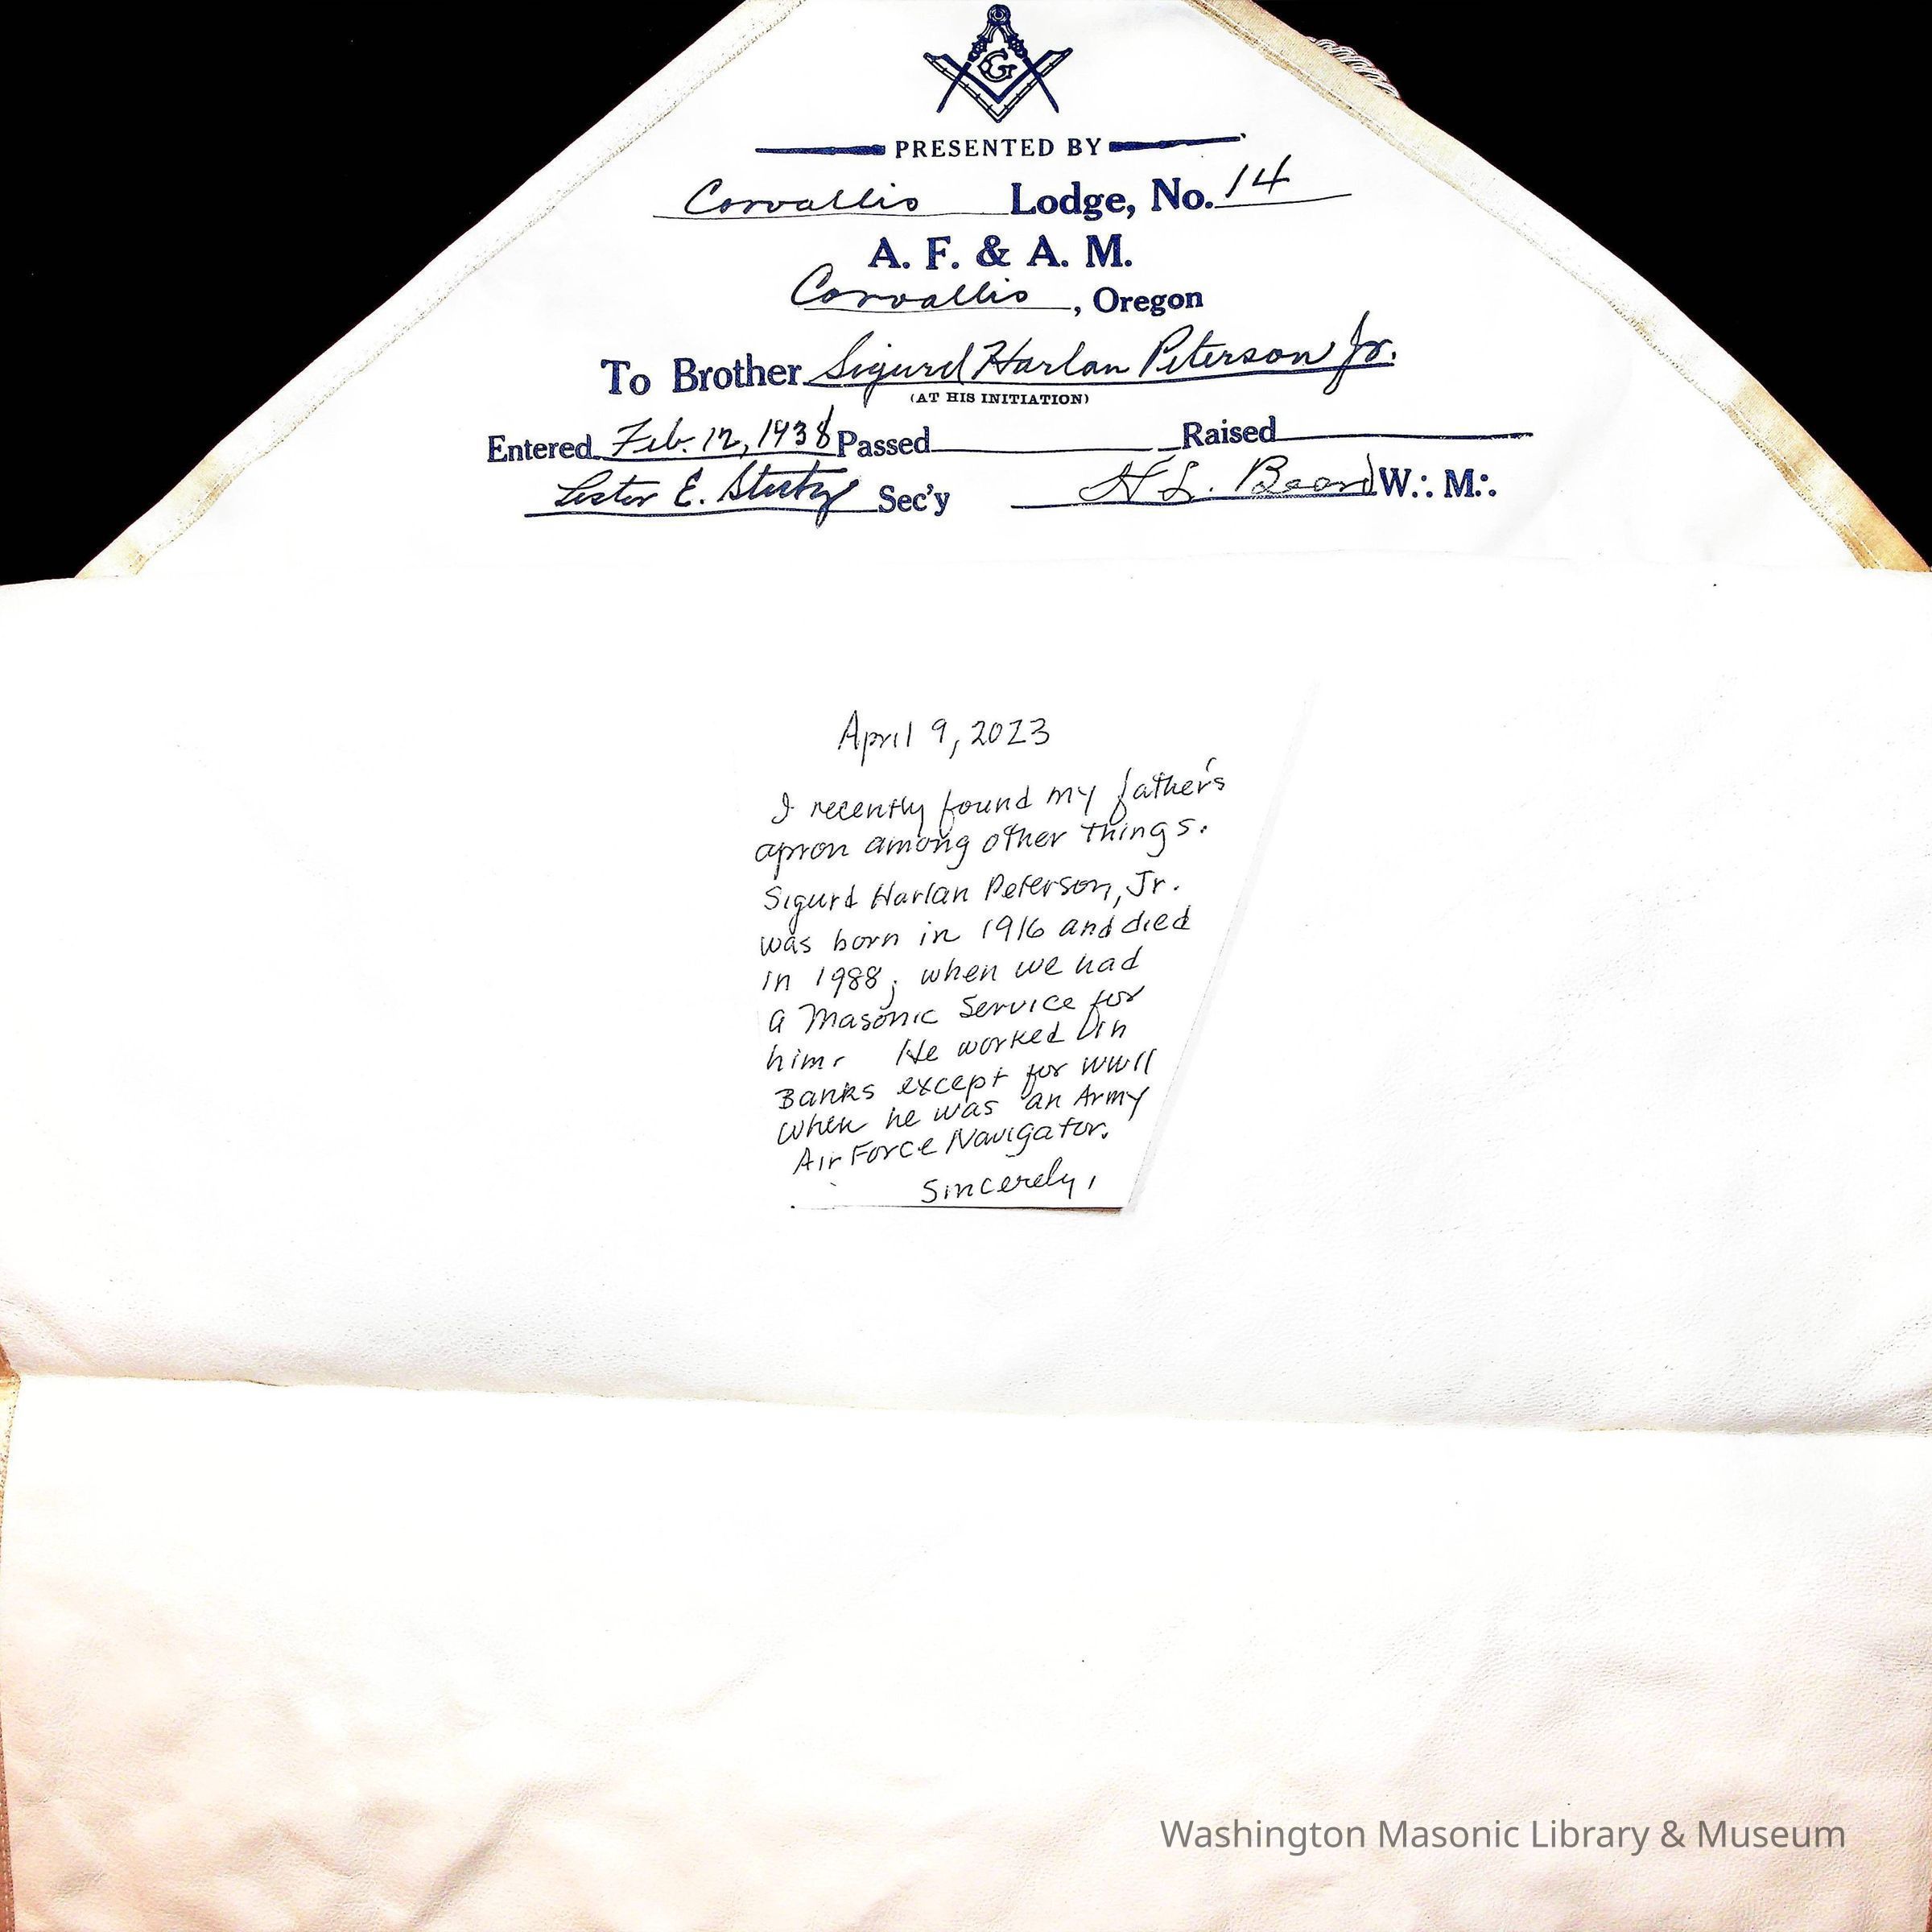 G
PRESENTED BY
Corvallis Lodge, No. 14
A. F. & A. M.
Corvallis, Oregon
To Brother Sigurd Harlan Peterson Jr.
(AT HIS INITIATION)
Entered Feb. 12, 1938 Passed Raised
Lester E. Sec'y H L. W.∴ M∴.
April 9, 2023
I recently found my father's
apron among other things.
Sigurd Harlan Peterson, Jr.
was born in 1916 and died
in 1988; when we had
a Masonic Service for
him. He worked in
Banks except for WWII
when he was an Army
Air Force Navigator.
Sincerely,
Washington Masonic Library & Museum